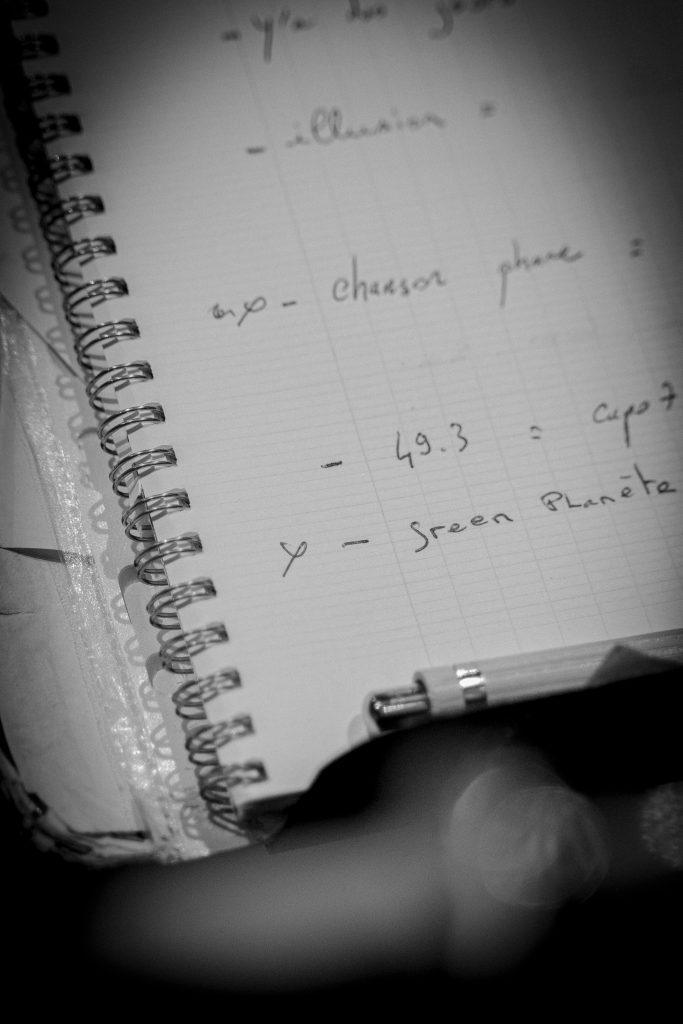 - y'a des jours
- illusion =
- chanson phare =
- 49.3 = capo 7
- Green Planète